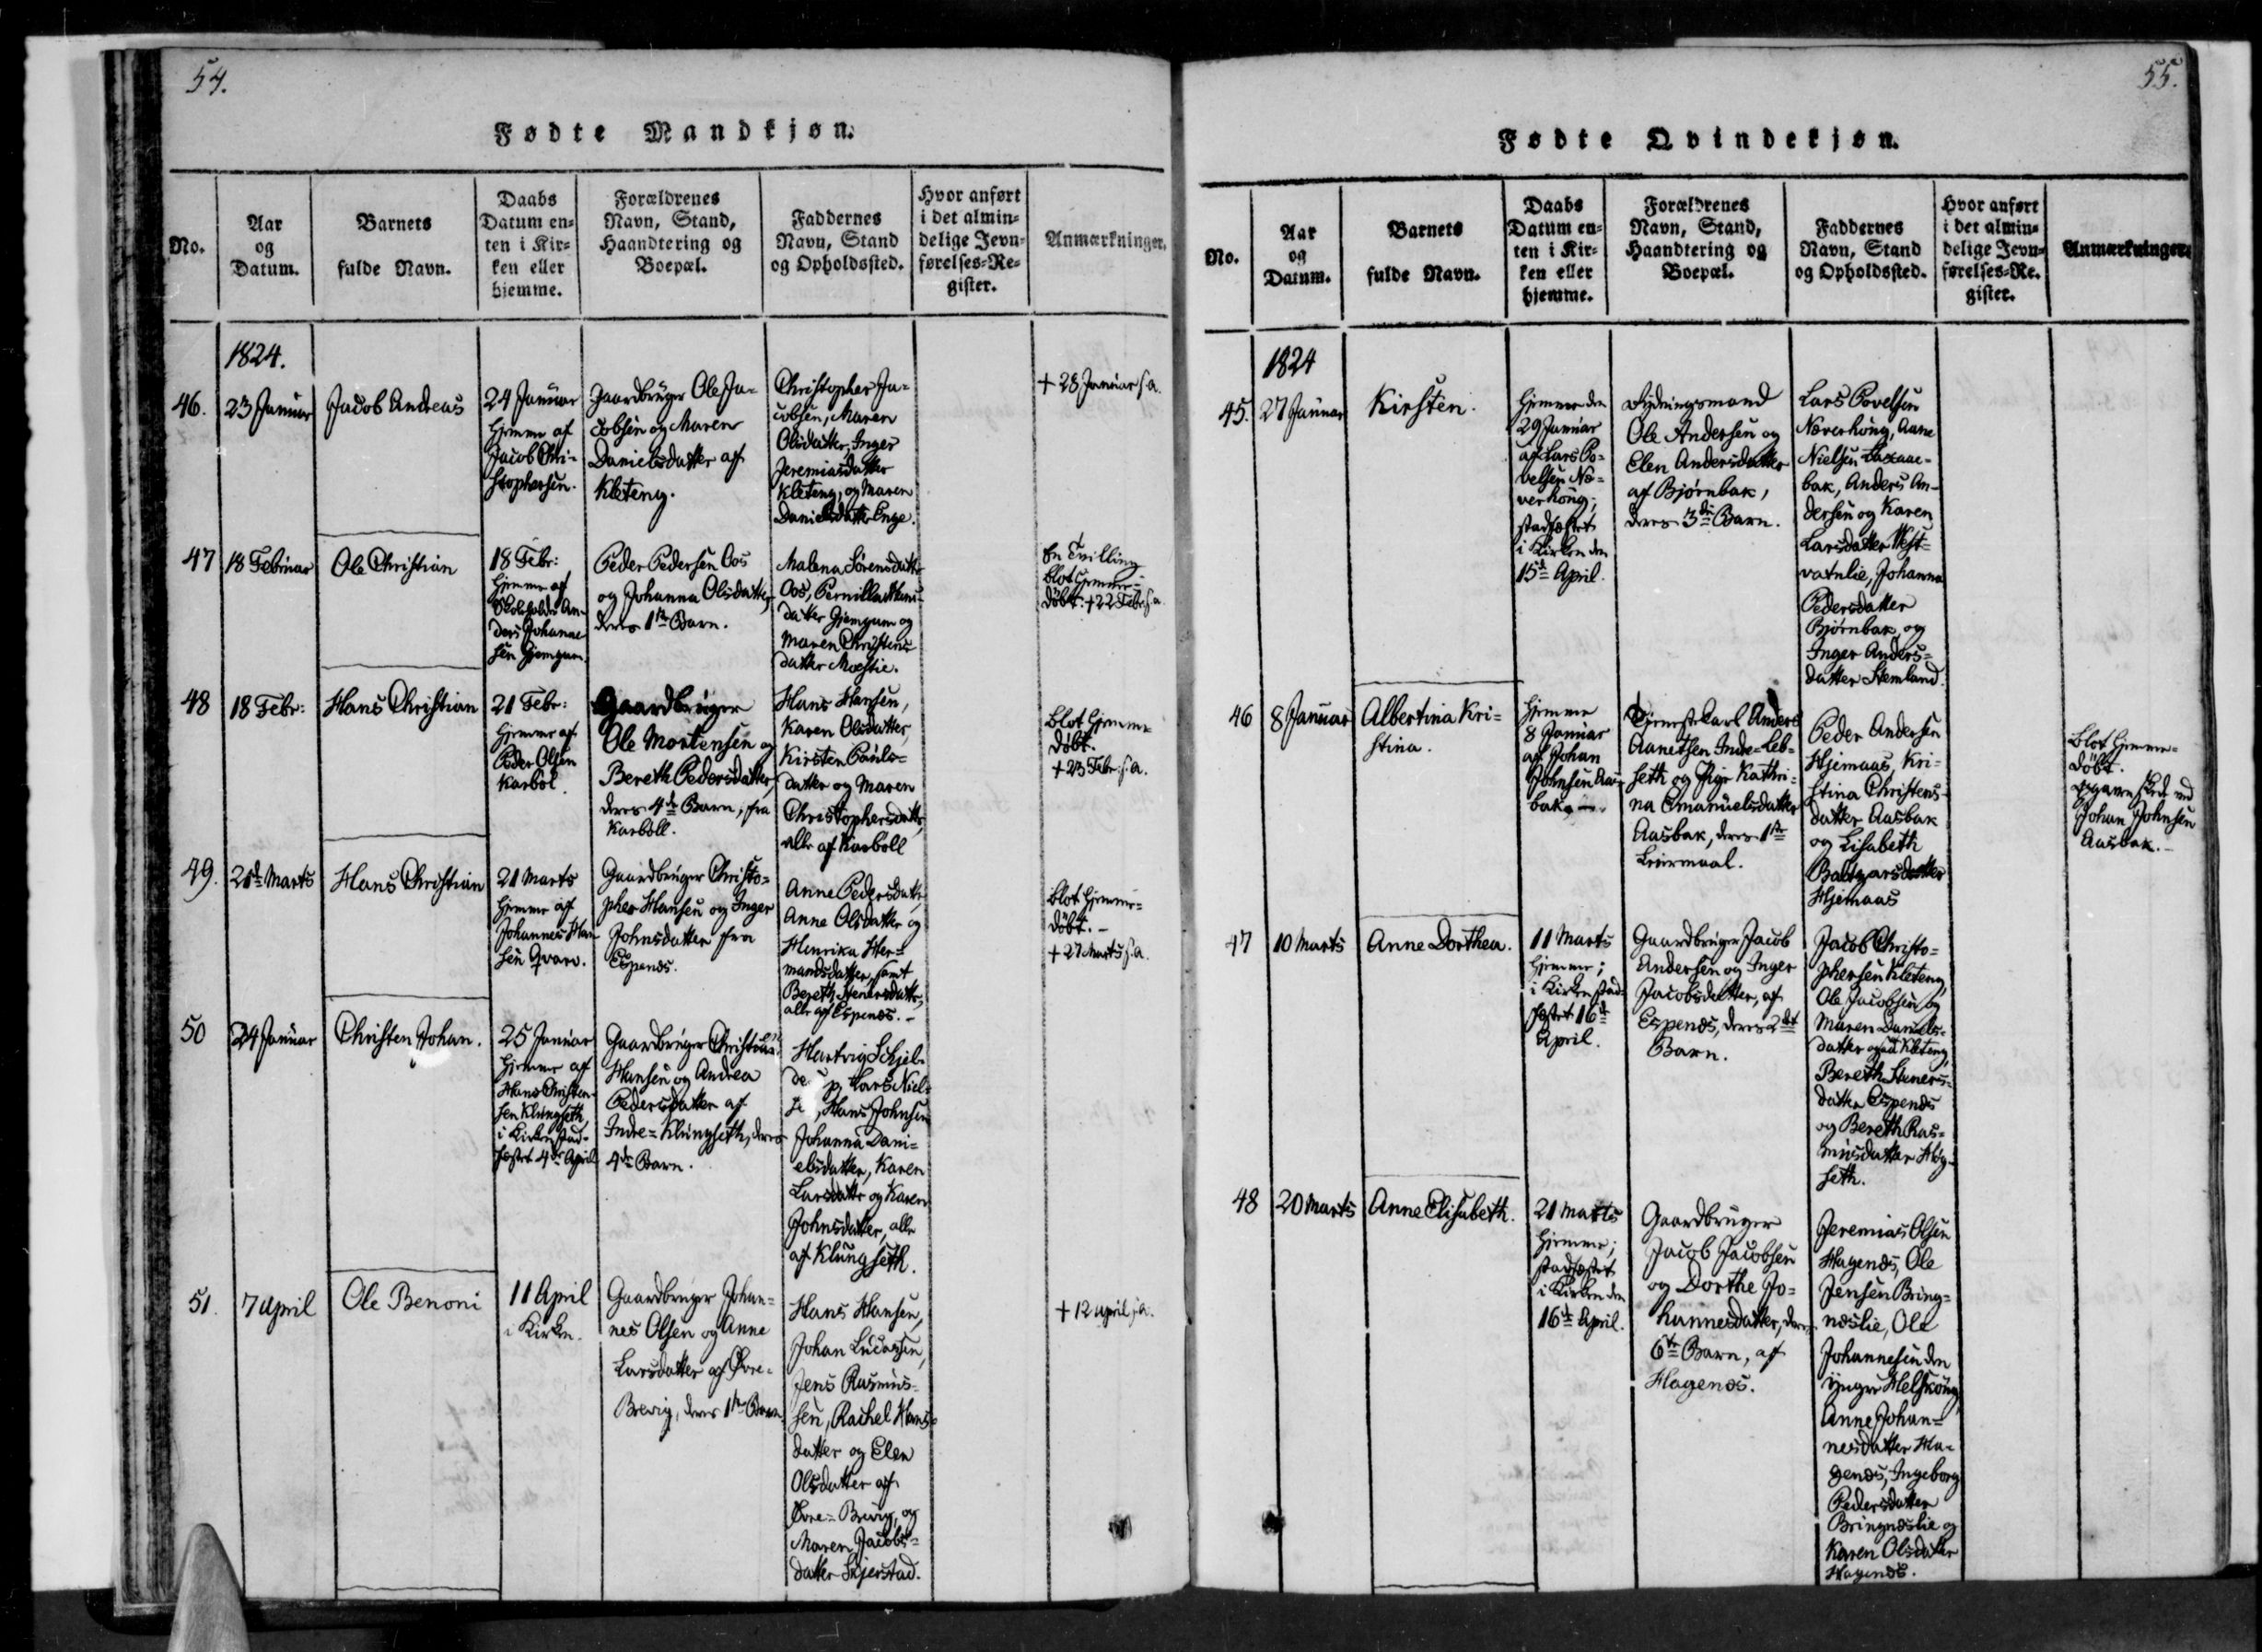 54.
Fødte Mandkjøn.
No.
Aar
og
Datum.
Barnets
fulde Navn.
Daabs
Datum en-
ten i Kir-
ken eller
hjemme.
Forældrenes
Navn, Stand,
Haandtering og
Boepæl.
Faddernes
Navn, Stand
og Opholdssted.
Hvor anført
i det almin-
delige Jevn-
førelses-Re-
gister.
Anmærkninger.
1824.
46.
23 Januar
Jacob Andreas
24 Januar
hjemme af
Jacob Chri-
stophersen.
Gaardbruger Ole Ja-
cobsen og Maren
Danielsdatter af
Kleteng.
Christopher Ja-
cobsen, Maren
Olsdatter, Inger
Jeremiasdatter
Kleteng, og Maren
Danielsdatter Enge.
+ 28 Januar s.a.
47
18 Februar
Ole Christian
18 Febr:
hjemme af
Skoleholder An-
ders Johanne-
sen Hjemgam.
Peder Pedersen Oos
og Johanna Olsdatter,
deres 1ste Barn.
Malena Sörensdatter
Oos, Pernilla
datter Hjemgam og
Maren Christens
datter Moestie.
En Tvilling
blot hjemme-
döbt. + 22 Febr. s.a.
48
18 Febr:
Hans Christian
21 Febr:
hjemme af
Peder Olsen
Karböl.
Gaardbruger
Ole Mortensen og
Bereth Pedersdatter,
deres 4de Barn, fra
Karböll.
Hans Hansen,
Karen Olsdatter,
Kirsten Pouls-
datter og Maren
Christophersdatter,
alle af Karböll
Blot hjemme
döbt.
+ 23 Febr: s.a.
49.
21de Marts
Hans Christian
21 Marts
hjemme af
Johannes Han-
sen Qvarv.
Gaardbruger Christo-
pher Hansen og Inger
Johnsdatter fra
Espenæs.
Anne Pedersdatter,
Anne Olsdatter og
Henrika Her-
mandsdatter, samt
Bereth Stenersdatter,
alle af Espenæs. -
blot hjemme-
döbt. -
+ 27 Marts s.a.
50
24 Januar
Christen Johan.
25 Januar
hjemme af
Hans Christen-
sen Klungseth
i Kirken stad-
fæstet 4de April
Gaardbruger Christian
Hansen og Andrea
Pedersdatter af
Indre-Klungseth, deres
4de Barn.
Hartvig Schjel-
Lars Niel-
Hans Johnsen
Johanna Dani-
elsdatter, Karen
Larsdatter og Karen
Johnsdatter, alle
af Klungseth.
51.
7 April
Ole Benoni
11 April
i Kirken.
Gaardbruger Johan-
nes Olsen og Anne
Larsdatter af Øvre-
Brevig, deres 1ste Barn.
Hans Hansen,
Johan Lucassen,
Jens Rasmus-
sen, Rachel Hans-
datter og Elen
Olsdatter af
Øvre-Brevig, og
Maren Jacobs-
datter Skjerstad.
+ 12 April s.a.
55.
Fødte Qvindekjøn.
No.
Aar
og
Datum.
Barnets
fulde Navn.
Daabs
Datum en-
ten i Kir-
ken eller
hjemme.
Forældrenes
Navn, Stand,
Haandtering og
Boepæl.
Faddernes
Navn, Stand
og Opholdssted.
Hvor anført
i det almin-
delige Jevn-
førelses-Re-
gister.
Anmærkninger.
1824
45.
27 Januar
Kirsten.
hjemme den
29 Januar
af Lars Po-
velsen Næ-
verhoug;
stadfæstet
i Kirken den
15de April.
Rydningsmand
Ole Andersen og
Elen Andersdatter
af Bjørnbak,
deres 3die Barn.
Lars Povelsen
Næverhoug, Aane
Nielsen
bak, Anders An-
dersen og Karen
Larsdatter Vest-
vatnlie, Johanna
Pedersdatter
Bjørnbak, og
Inger Anders-
datter Hemland.
46
8 Januar
Albertina Kri-
stina.
hjemme
8 Januar
af Johan
Johnsen Aas-
bak. -
Tjenestekarl Anders
Aanetsen Indre-Leb-
seth og Pige Kathri-
na Emanuelsdatter
Aasbak, deres 1ste
Leiermaal.
Peder Andersen
Hjemaas, Kri-
stina Christens-
datter Aasbak
og Lisabeth
Baltzarsdatter
Hjemaas
Blot hjemme-
döbt.
ved
Johan Johnsen
Aasbak. -
47
10 Marts
Anne Dorthea.
11 Marts
hjemme;
i Kirken stad-
fæstet 16de
April.
Gaardbruger Jacob
Andersen og Inger
Jacobsdatter, af
Espenæs, deres 2det
Barn.
Jacob Christo-
phersen Kleteng,
Ole Jacobsen og
Maren Daniels-
datter Kleteng,
Bereth Steners-
datter Espenæs
og Bereth Ras-
musdatter Høg-
seth.
48
20 Marts
Anne Elisabeth.
21 Marts
hjemme;
stadfæstet
i Kirken den
16de April.
Gaardbruger
Jacob Jacobsen
og Dorthe Jo-
hannesdatter, deres
6te Barn, af
Hagenæs.
Jeremias Olsen
Hagenæs, Ole
Jensen Bring-
næslie, Ole
Johannesen den
yngre Helskoug,
Anne Johan-
nesdatter Ha-
genæs, Ingeborg
Pedersdatter
Bringnæslie og
Karen Olsdatter
Hagenæs.